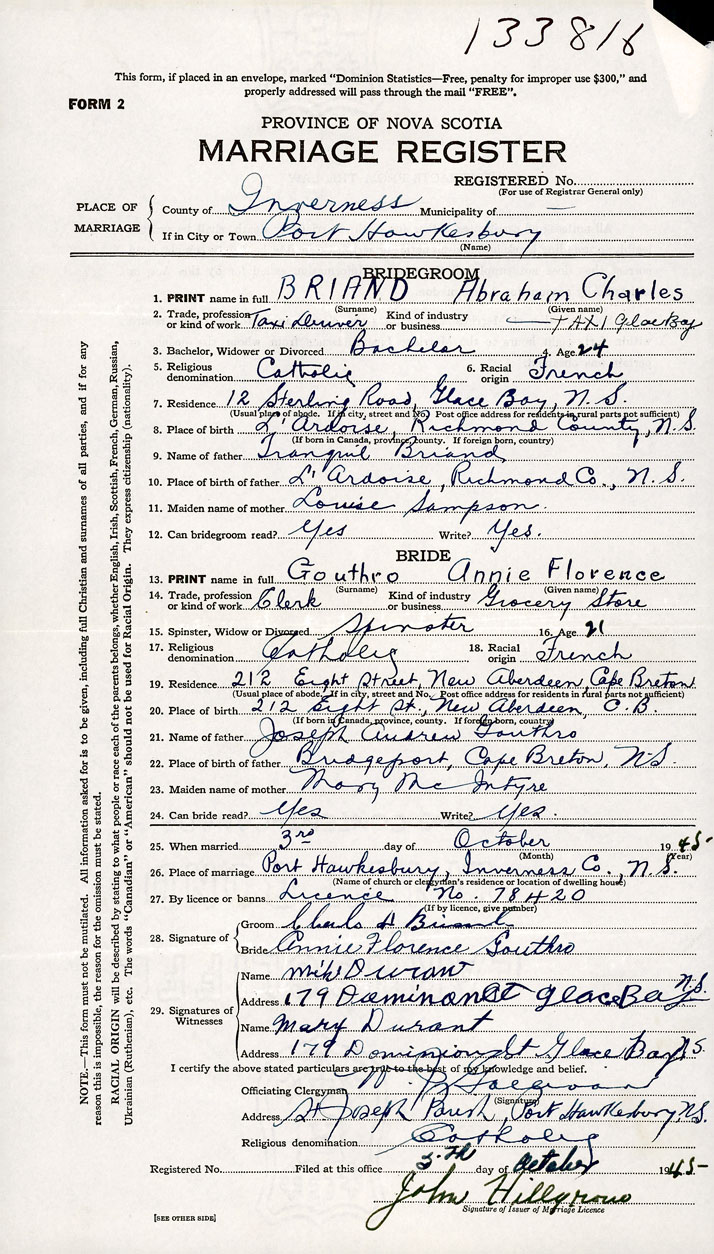 133816
This form, if placed in an envelope, marked "Dominion Statistics—Free, penalty for improper use $300," and
properly addressed will pass through the mail "FREE".
FORM 2
PROVINCE OF NOVA SCOTIA
MARRIAGE REGISTER
REGISTERED No.
(For use of Registrar General only)
PLACE OF MARRIAGE
County of Inverness Municipality of —
If in City or Town Port Hawkesbury
(Name)
BRIDEGROOM
1. PRINT name in full BRIAND Abraham Charles
(Surname) (Given name)
2. Trade, profession or kind of work Taxi Driver Kind of industry or business — TAXI Glace Bay
3. Bachelor, Widower or Divorced Bachelor 4. Age 24
5. Religious denomination Catholic 6. Racial origin French
7. Residence 12 Sterling Road, Glace Bay, N.S.
(Usual place of abode. If in city, street and No. Post office address for residents in rural parts not sufficient)
8. Place of birth L'Ardoise, Richmond County, N.S.
(If born in Canada, province, county. If foreign born, country)
9. Name of father Tranquil Briand
10. Place of birth of father L'Ardoise, Richmond Co., N.S.
11. Maiden name of mother Louise Sampson.
12. Can bridegroom read? Yes Write? Yes.
BRIDE
13. PRINT name in full Gouthro Annie Florence
(Surname) (Given name)
14. Trade, profession or kind of work Clerk Kind of industry or business Grocery Store
15. Spinster, Widow or Divorced Spinster 16. Age 21
17. Religious denomination Catholic 18. Racial origin French
19. Residence 212 Eight Street, New Aberdeen, Cape Breton
(Usual place of abode. If in city, street and No. Post office address for residents in rural parts not sufficient)
20. Place of birth 212 Eight St., New Aberdeen, C.B.
(If born in Canada, province, county. If foreign born, country)
21. Name of father Joseph Andrew Gouthro
22. Place of birth of father Bridgeport, Cape Breton, N.S.
23. Maiden name of mother Mary McIntyre
24. Can bride read? Yes Write? Yes.
25. When married 3rd day of October 1945
(Month) (Year)
26. Place of marriage Port Hawkesbury, Inverness Co., N.S.
(Name of church or clergyman's residence or location of dwelling house)
27. By licence or banns Licence No. 78420
(If by licence, give number)
28. Signature of
Groom Charls A Briand
Bride Annie Florence Gouthro
29. Signatures of Witnesses
Name Mike Durant
Address 179 Dominon St Glace Bay N.S.
Name Mary Durant
Address 179 Dominion St Glace Bay N.S.
I certify the above stated particulars are true to the best of my knowledge and belief.
Officiating Clergyman
(Signature)
Address St Joseph Parish, Port Hawkesbury, N.S.
Religious denomination Catholic
Registered No. Filed at this office 5th day of October 1945
John Hillyrous
Signature of Issuer of Marriage Licence
[SEE OTHER SIDE]
NOTE.—This form must not be mutilated. All information asked for is to be given, including full Christian and surnames of all parties, and if for any
reason this is impossible, the reason for the omission must be stated.
RACIAL ORIGIN will be described by stating to what people or race each of the parents belongs, whether English, Irish, Scottish, French, German, Russian,
Ukrainian (Ruthenian), etc. The words "Canadian" or "American" should not be used for Racial Origin. They express citizenship (nationality).